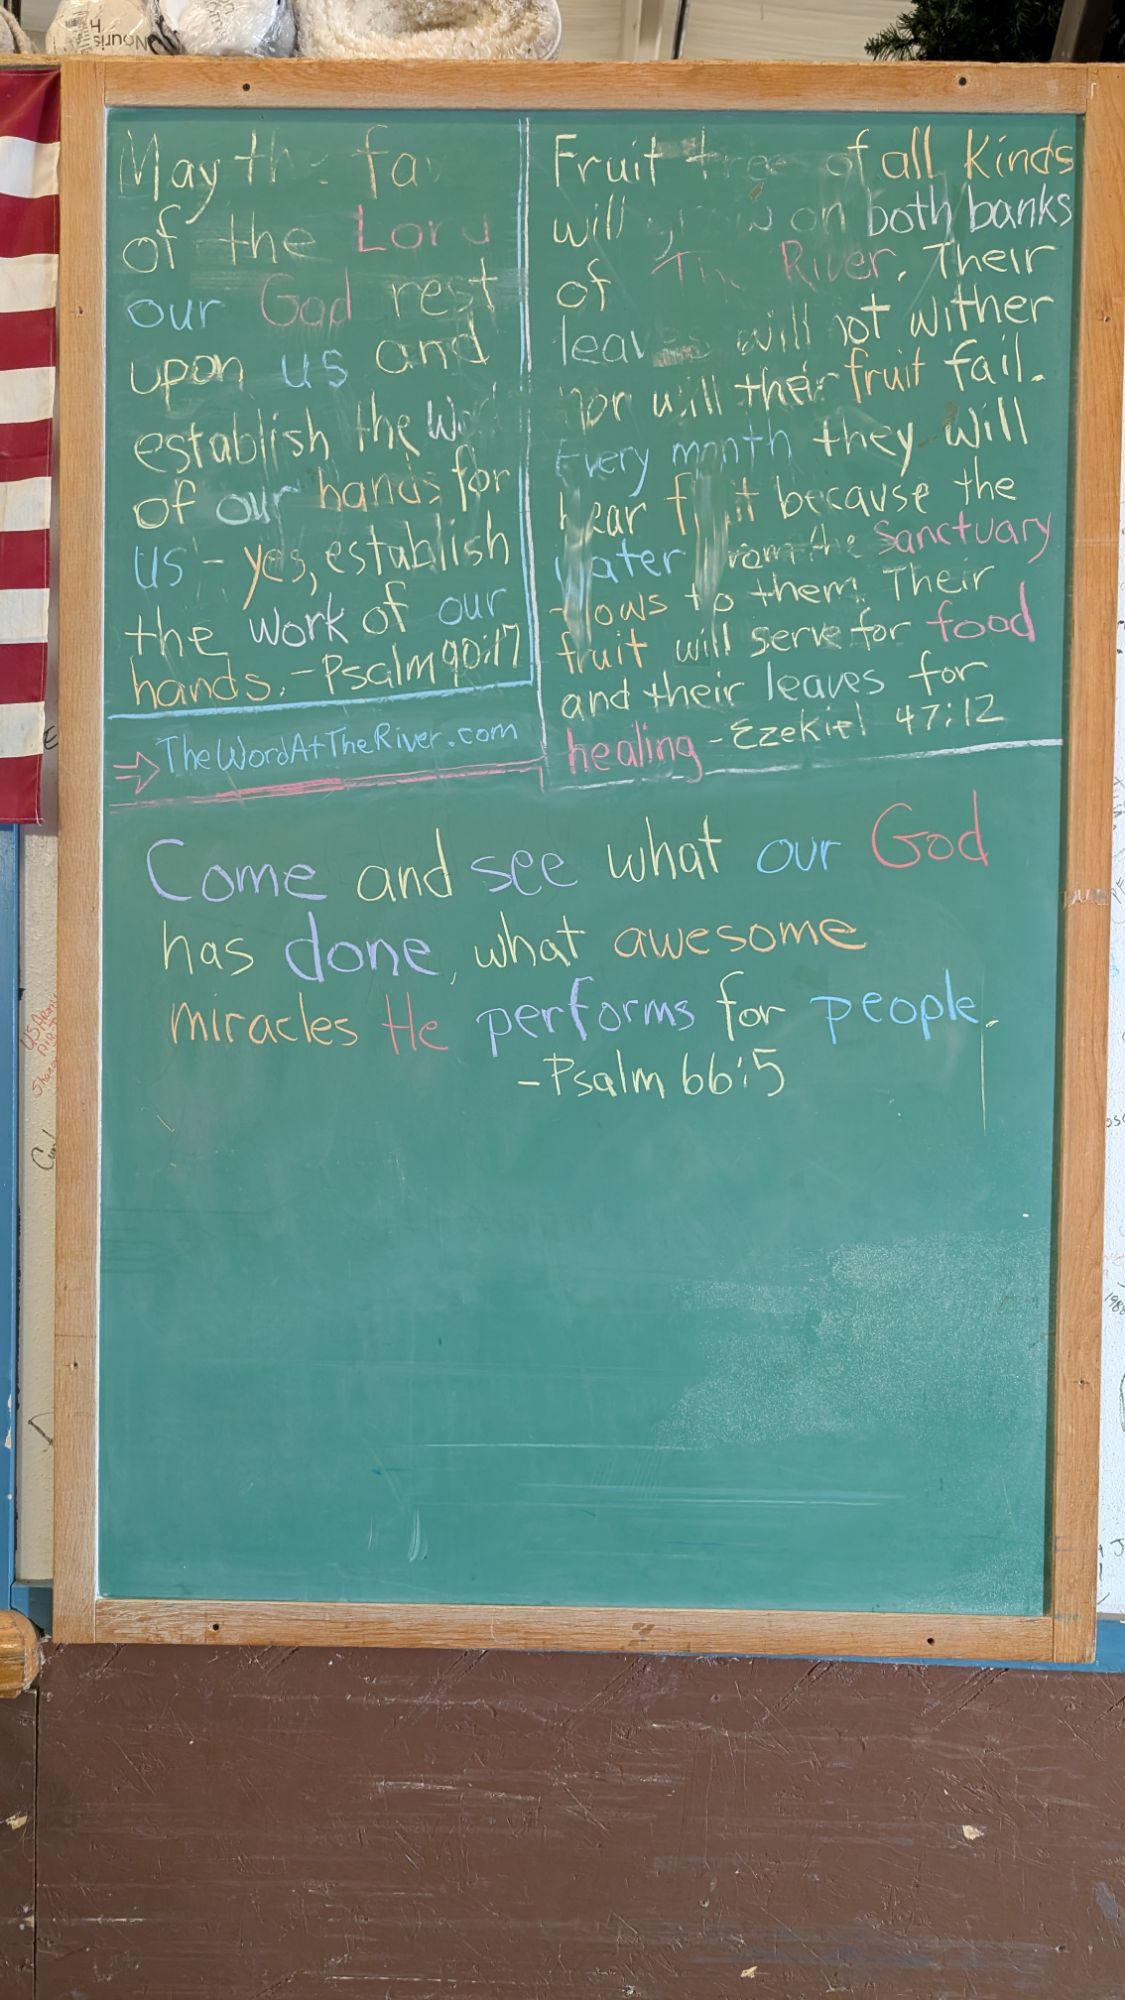 May the fa
of the Lord
our God rest
upon us and
establish the
of our hands for
us - yes, establish
the work of our
hands. - Psalm 90:17
TheWordAtTheRiver.com
Fruit of all Kinds
will on both banks
of The River. Their
leaves will not wither
nor will their fruit fail.
Every month they will
bear fruit because the
water from the Sanctuary
flows to them. Their
fruit will serve for food
and their leaves for
healing - Ezekiel 47:12
Come and see what our God
has done, what awesome
miracles He performs for people.
- Psalm 66:5